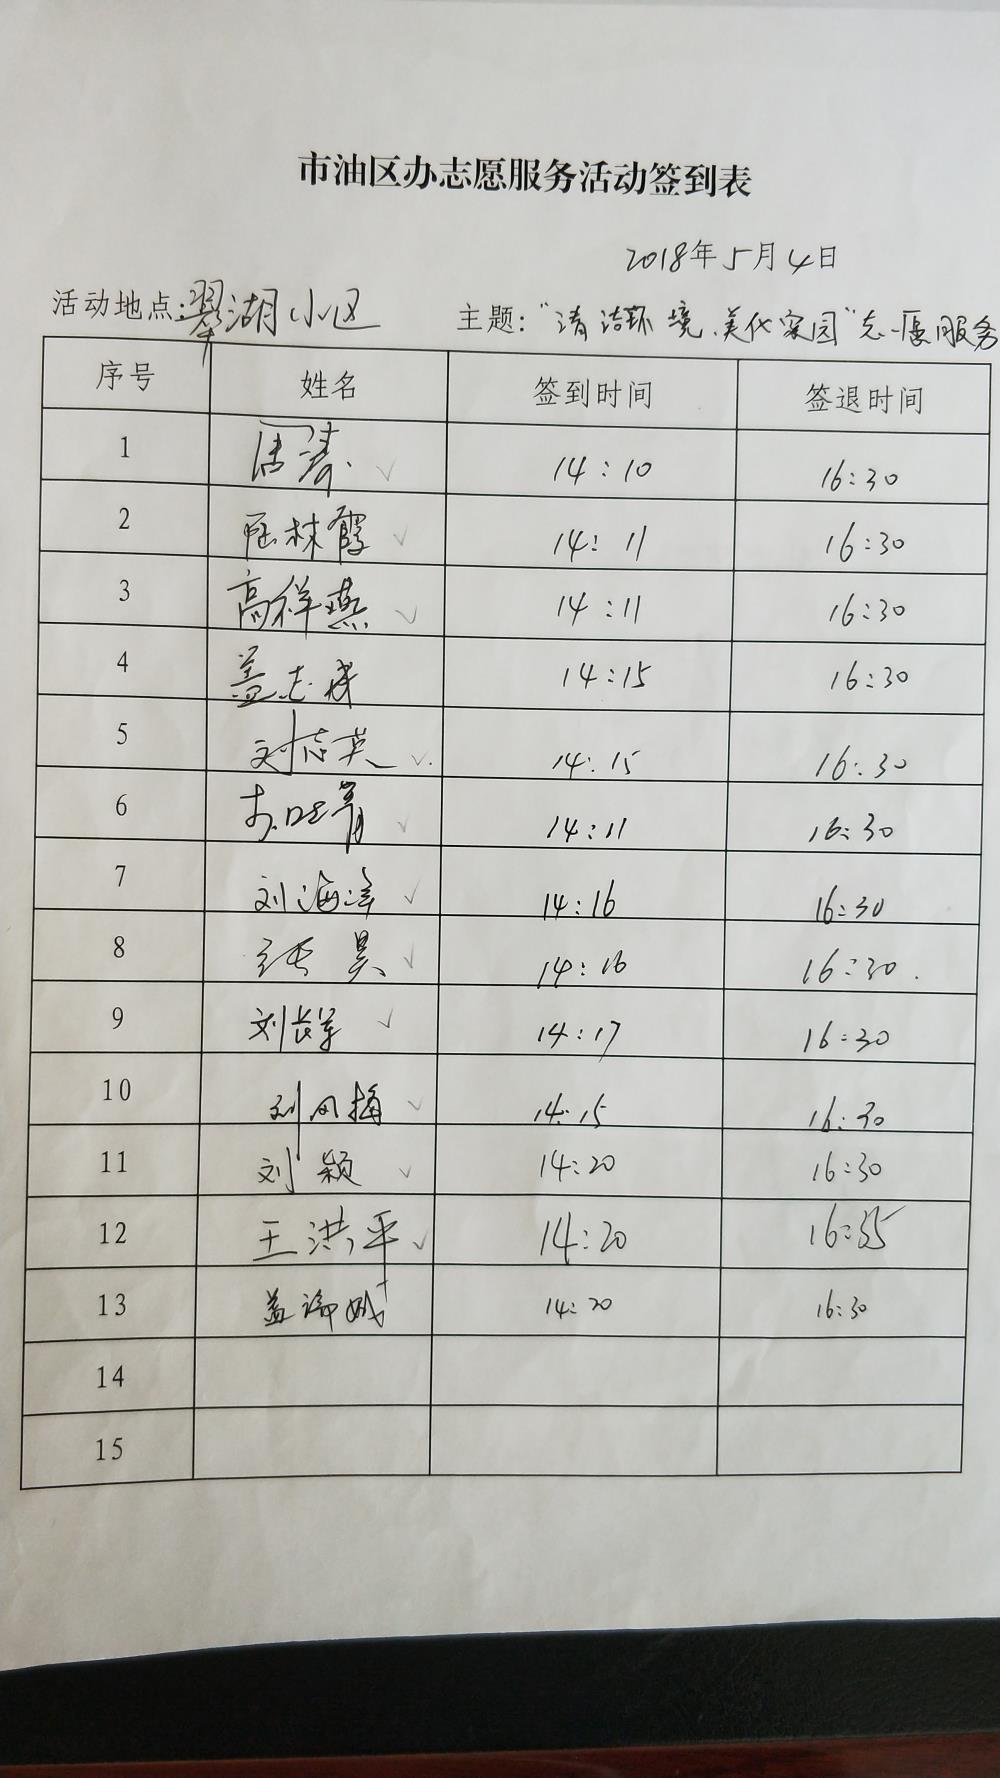 市油区办志愿服务活动签到表
2018年5月4日
活动地点:翠湖小区 主题:"清洁环境、美化家园"志愿服务
序号 姓名 签到时间 签退时间
1 周涛 14:10 16:30
2 林霞 14:11 16:30
3 高祥燕 14:11 16:30
4 盖志成 14:15 16:30
5 刘志英 14:15 16:30
6 14:11 16:30
7 刘海洋 14:16 16:30
8 张昊 14:16 16:30
9 刘长军 14:17 16:30
10 刘风梅 14:15 16:30
11 刘颖 14:20 16:30
12 王洪平 14:20 16:35
13 盖 14:20 16:30
14
15